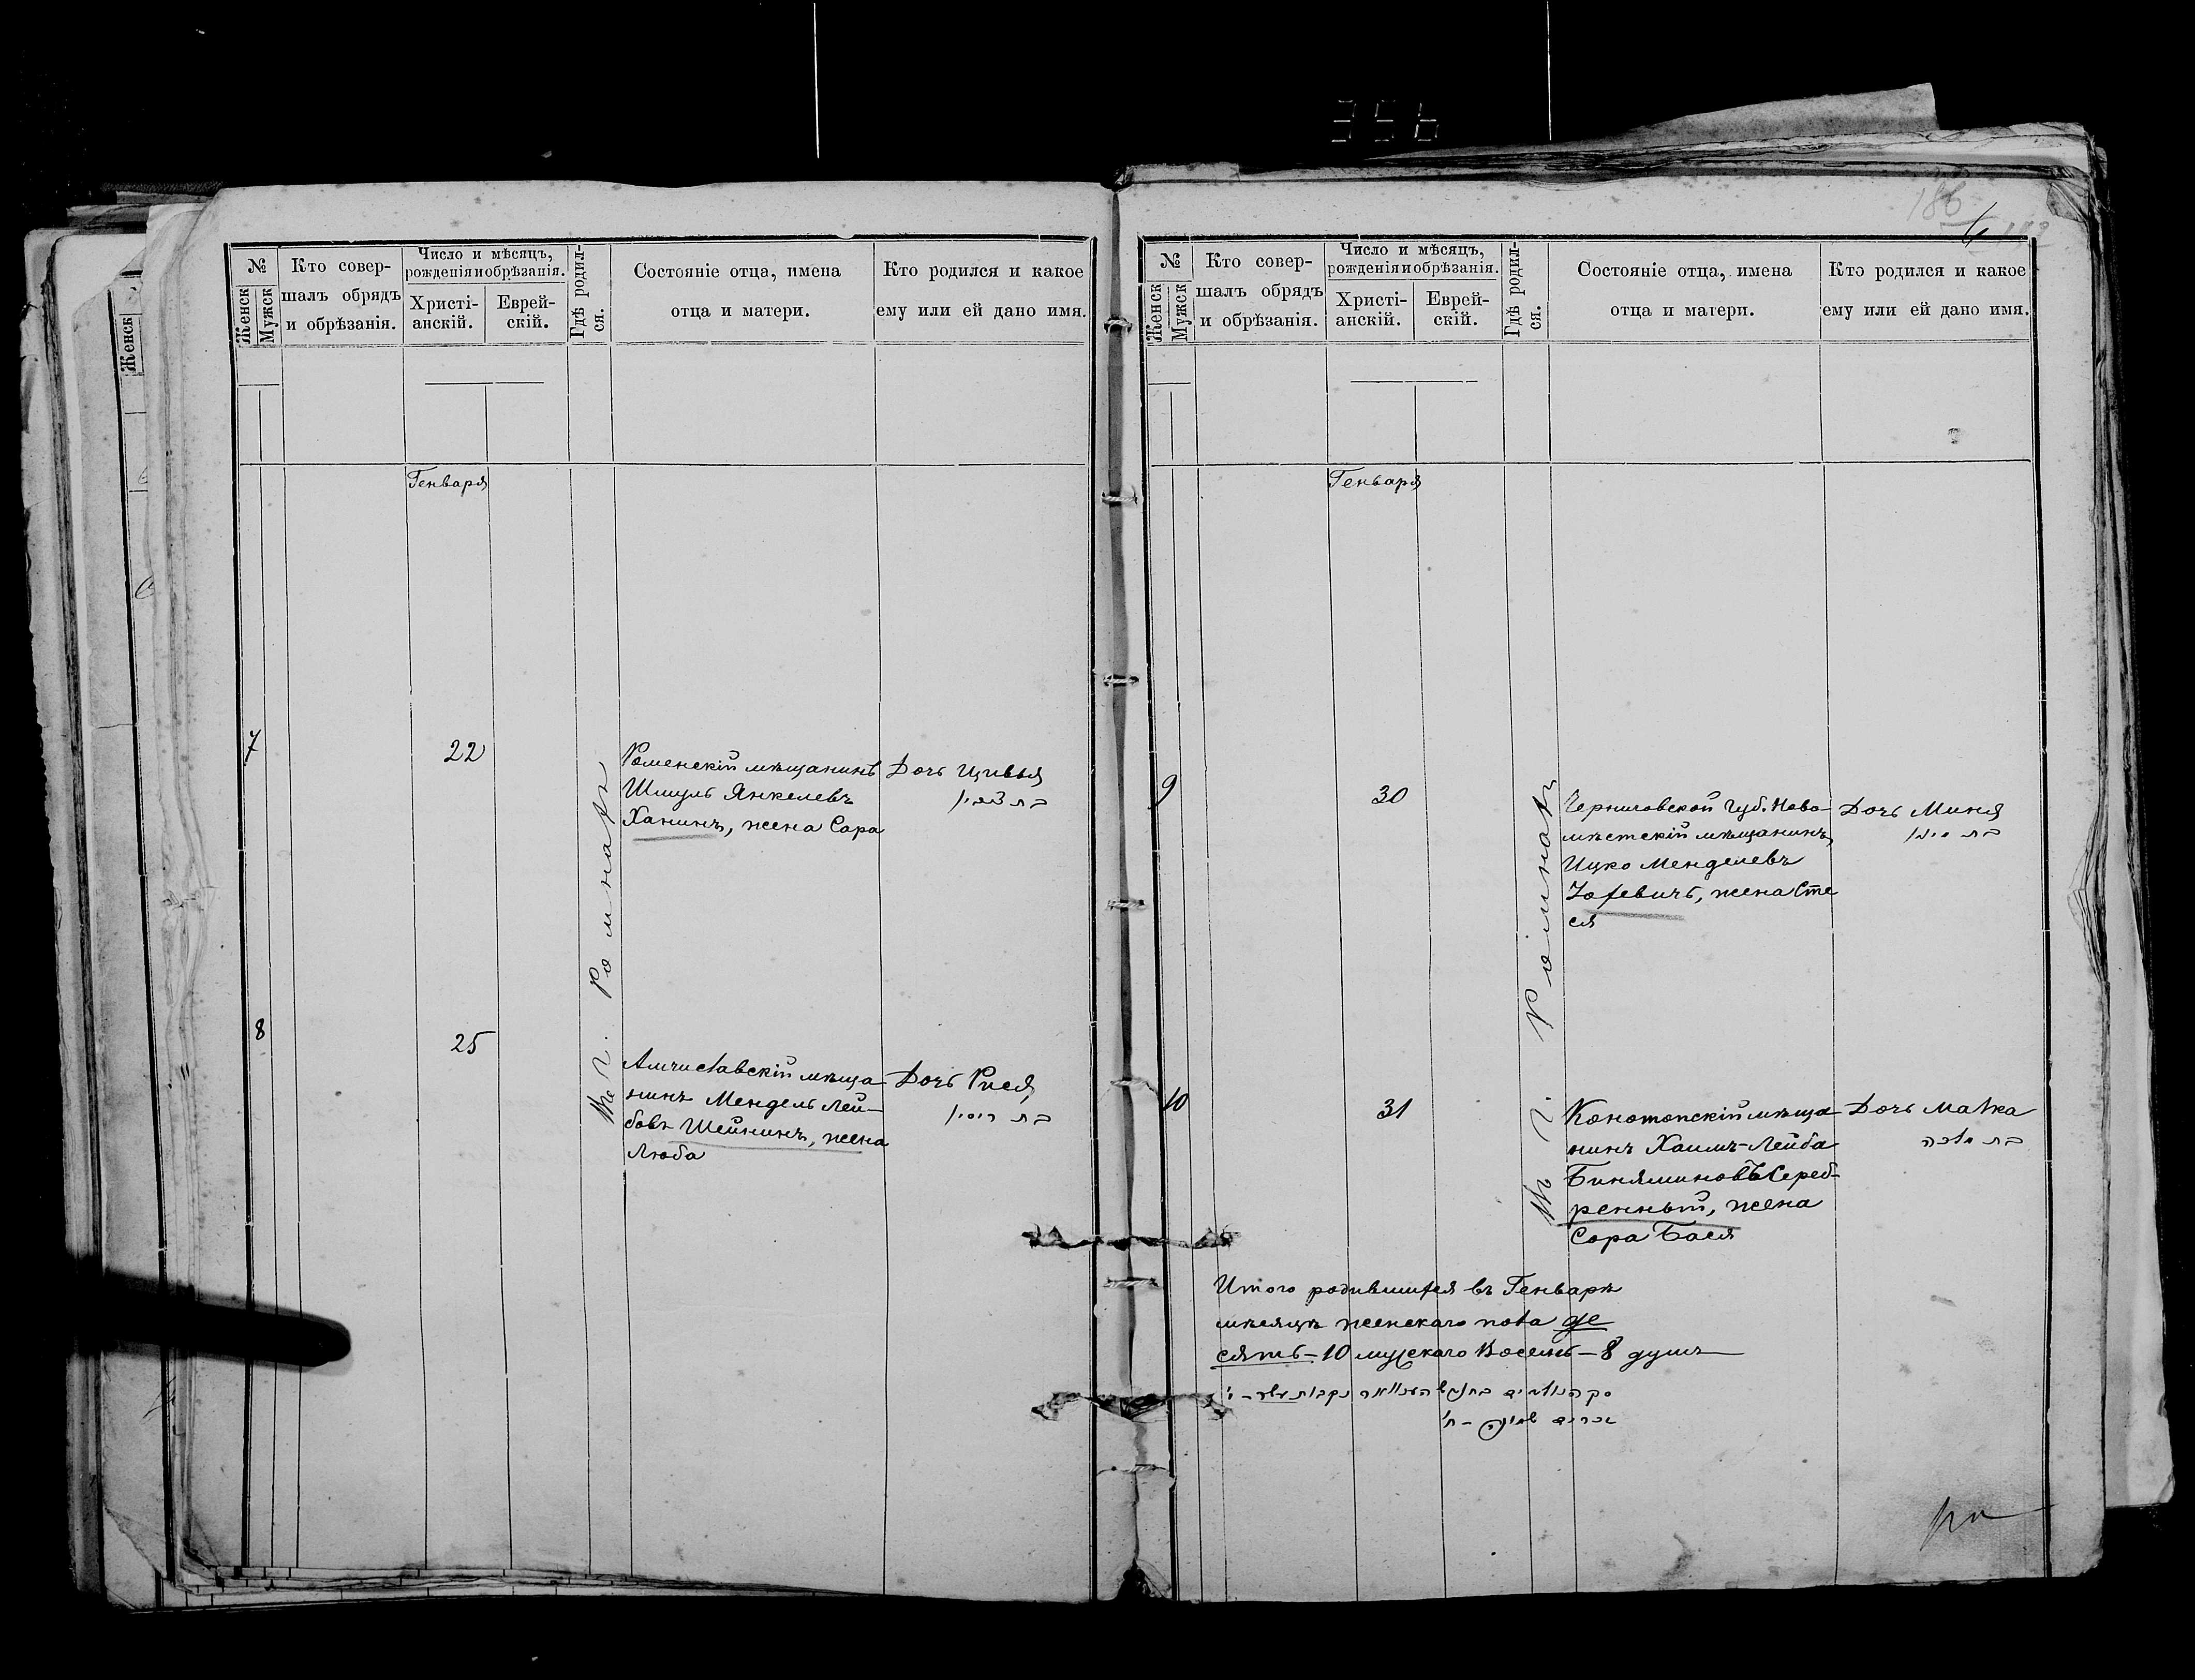 356
№
Женск
Мужск
Кто совер-
шалъ обрядъ
и обрѣзанія.
Число и мѣсяцъ,
рожденія и обрѣзанія.
Христі-
анскій.
Еврей-
скій.
Гдѣ родил-
ся.
Состояніе отца, имена
отца и матери.
Кто родился и какое
ему или ей дано имя.
Генваря
7
22
Въ г. Ромнахъ
Роменскій мѣщанинъ
Шмуль Янкелевъ
Ханинъ, жена Сара
Дочь Цивья
8
25
Амчиславскій мѣща-
нинъ Мендель Лей-
бовъ Шейнинъ, жена
Люба
Дочь Рися
186
№
Женск
Мужск
Кто совер-
шалъ обрядъ
и обрѣзанія.
Число и мѣсяцъ,
рожденія и обрѣзанія.
Христі-
анскій.
Еврей-
скій.
Гдѣ родил-
ся.
Состояніе отца, имена
отца и матери.
Кто родился и какое
ему или ей дано имя.
Генваря
9
30
Въ г. Ромнахъ
Черниговской Губ. Ново-
мѣстскій мѣщанинъ
Ицко Менделевъ
Іохевичъ, жена Сте
ся
Дочь Миня
10
31
Конотопскій мѣща-
нинъ Хаимъ-Лейба
Биняминовъ Сереб-
ренный, жена
Сора Бася
Дочь Малка
בת מלכה
Итого родившихся въ Генварѣ
мѣсяцѣ женскаго пола де
сять – 10 мужскаго Восемь – 8 душъ